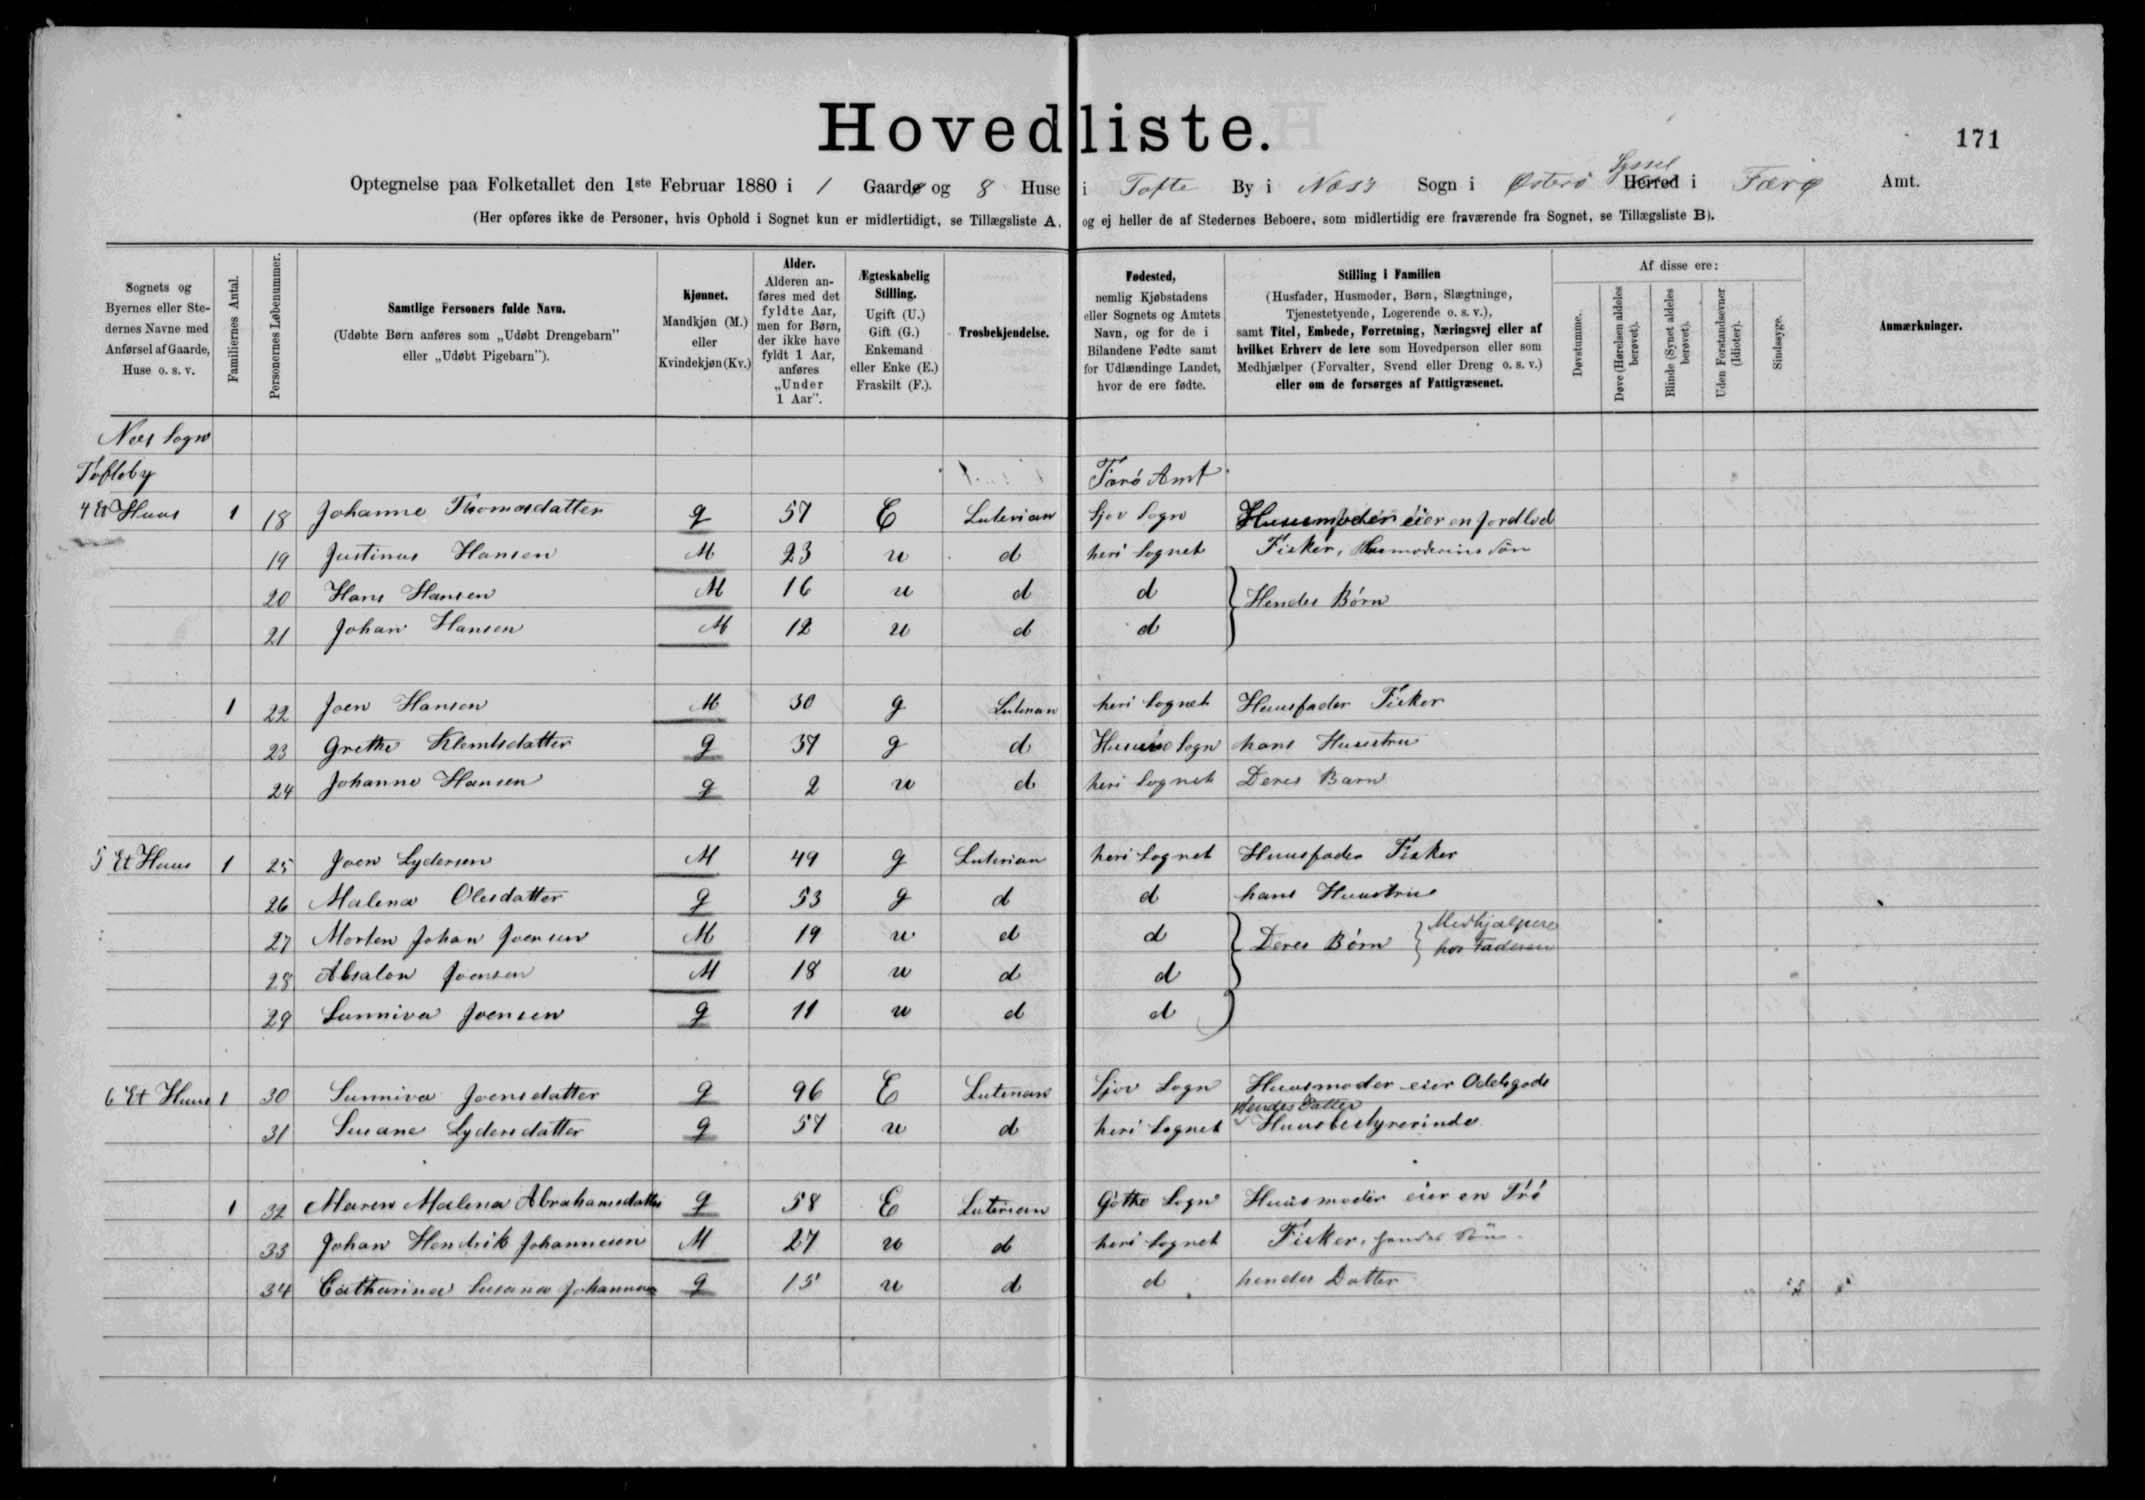 Hovedliste.
171
Optegnelse paa Folketallet den 1ste Februar 1880 i 1 Gaarde og 8 Huse i Tofte By i Næss Sogn i Østerö Herred Syssel i Færø Amt.
(Her opføres ikke de Personer, hvis Ophold i Sognet kun er midlertidigt, se Tillægsliste A. og ej heller de af Stedernes Beboere, som midlertidig ere fraværende fra Sognet, se Tillægsliste B).
Sognets og Byernes eller Stedernes Navne med Anførsel af Gaarde, Huse o. s. v.
Familiernes Antal.
Personernes Løbenummer.
Samtlige Personers fulde Navn.
(Udøbte Børn anføres som „Udøbt Drengebarn" eller „Udøbt Pigebarn").
Kjønnet.
Mandkjøn (M.) eller Kvindekjøn (Kv.)
Alder.
Alderen anføres med det fyldte Aar, men for Børn, der ikke have fyldt 1 Aar, anføres „Under 1 Aar".
Ægteskabelig Stilling.
Ugift (U.) Gift (G.) Enkemand eller Enke (E.) Fraskilt (F.).
Trosbekjendelse.
Fødested,
nemlig Kjøbstadens eller Sognets og Amtets Navn, og for de i Bilandene Fødte samt for Udlændinge Landet, hvor de ere fødte.
Stilling i Familien
(Husfader, Husmoder, Børn, Slægtninge, Tjenestetyende, Logerende o. s. v.),
samt Titel, Embede, Forretning, Næringsvej eller af hvilket Erhverv de leve som Hovedperson eller som Medhjælper (Forvalter, Svend eller Dreng o. s. v.) eller om de forsørges af Fattigvæsenet.
Af disse ere:
Døvstumme.
Døve (Hørelsen aldeles berøvet).
Blinde (Synet aldeles berøvet).
Uden Forstandsevner (Idioter).
Sindssyge.
Anmærkninger.
Næs Sogn
Tofteby Færö Amt
4 Et Huus 1 18 Johanne Thomasdatter q 57 E Luterian Sjov Sogn Huusmoder eier en Jordlod
19 Justinus Hansen M 23 u d heri Sognet Fisker, Husmoderens Sön
20 Hans Hansen M 16 u d d Hendes Børn
21 Johan Hansen M 12 u d d
1 22 Joen Hansen M 30 g Luterian heri Sognet Huusfader Fisker
23 Grethe Klemtsdatter q 37 g d Huusø Sogn hans Huustru
24 Johanne Hansen q 2 u d heri Sognet Deres Barn
5 Et Huus 1 25 Joen Lydersen M 49 g Luterian heri Sognet Huusfader Fisker
26 Malena Olesdatter q 53 g d d hans Huustru
27 Morten Johan Joensen M 19 u d d Deres Børn Medhjælpere hos Faderen
28 Absalon Joensen M 18 u d d
29 Sunniva Joensen q 11 u d d
6 Et Huus 1 30 Sunniva Joensdatter q 96 E Luterian Sjov Sogn Huusmoder eier Odelsgods
31 Susane Lydersdatter q 57 u d heri Sognet Hendes Datter Huusbestyrerinde
1 32 Maren Malena Abrahamsdatter q 58 E Luterian Göthe Sogn Huusmoder eier en Trö
33 Johan Hendrik Johannesen M 27 u d heri Sognet Fisker, hendes Sön
34 Catharina Susana Johannesen q 15 u d d hendes Datter